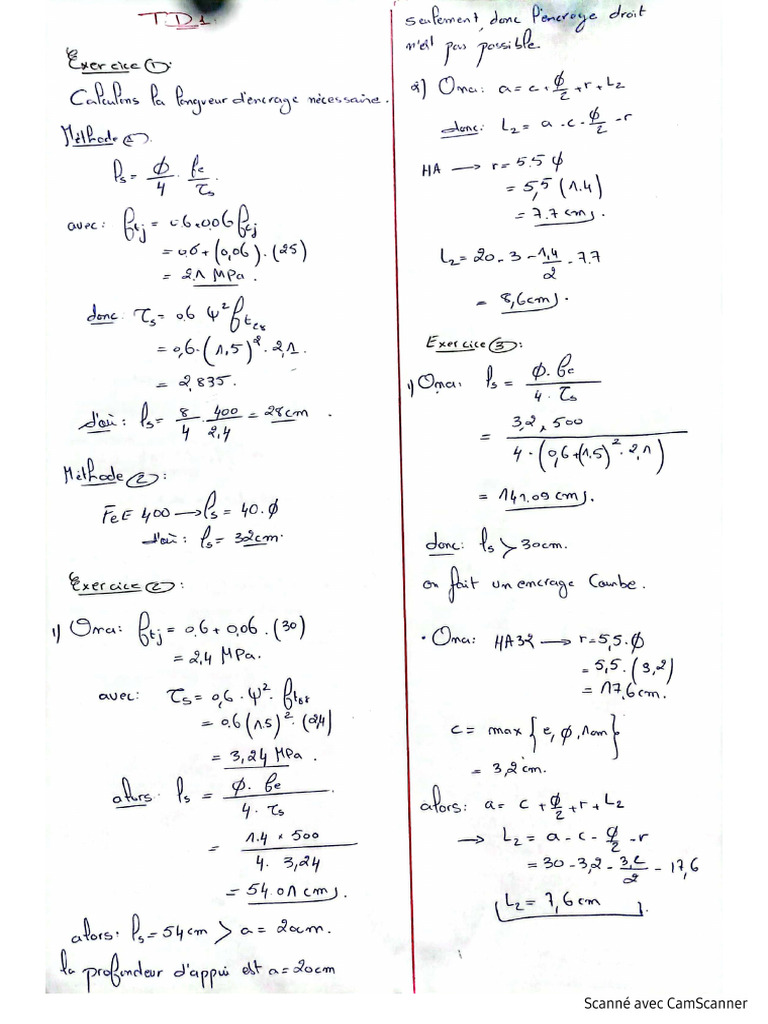 TD1:
Exercice ①:
Calculons la longueur d'encrage nécessaire.
Méthode ①:
ls = ϕ/4 . fe/τs
avec: ftj = 0.6+0.06 fcj
= 0.6+(0,06).(25)
= 2.1 MPa.
donc: τs = 0.6 Ψ² ftc28
= 0,6.(1,5)².2,1
= 2,835.
d'où: ls = 8/4 . 400/2,4 = 28cm.
Méthode ②:
FeE 400 → ls = 40.ϕ
d'où: ls = 32cm.
Exercice ②:
1) Ona: ftj = 0,6+0,06.(30)
= 2,4 MPa.
avec: τs = 0,6.Ψ².ft28
= 0.6(1.5)².(2,4)
= 3,24 MPa.
alors: ls = ϕ.fe / 4.τs
= 1.4 × 500 / 4. 3,24
= 54.01 cm.
alors: ls = 54cm > a = 20cm.
la profondeur d'appui est a = 20cm
seulement, donc l'encrage droit
n'est pas possible.
2) Ona: a = c + ϕ/2 + r + L2
donc: L2 = a - c - ϕ/2 - r
HA → r = 5.5 ϕ
= 5,5 (1.4)
= 7.7 cm.
L2 = 20 - 3 - 1,4/2 - 7.7
= 8,6cm.
Exercice ③:
1) Ona: ls = ϕ.fe / 4.τs
= 3,2 × 500 / 4.(0,6+(1,5)².2,1)
= 141.09 cm.
donc: ls > 30cm.
on fait un encrage Courbe.
• Ona: HA32 → r = 5,5.ϕ
= 5,5.(3,2)
= 17,6 cm.
c = max {e, ϕ, 1cm}
= 3,2 cm.
alors: a = c + ϕ/2 + r + L2
→ L2 = a - c - ϕ/2 - r
= 30 - 3,2 - 3,2/2 - 17,6
L2 = 7,6 cm.
Scanné avec CamScanner